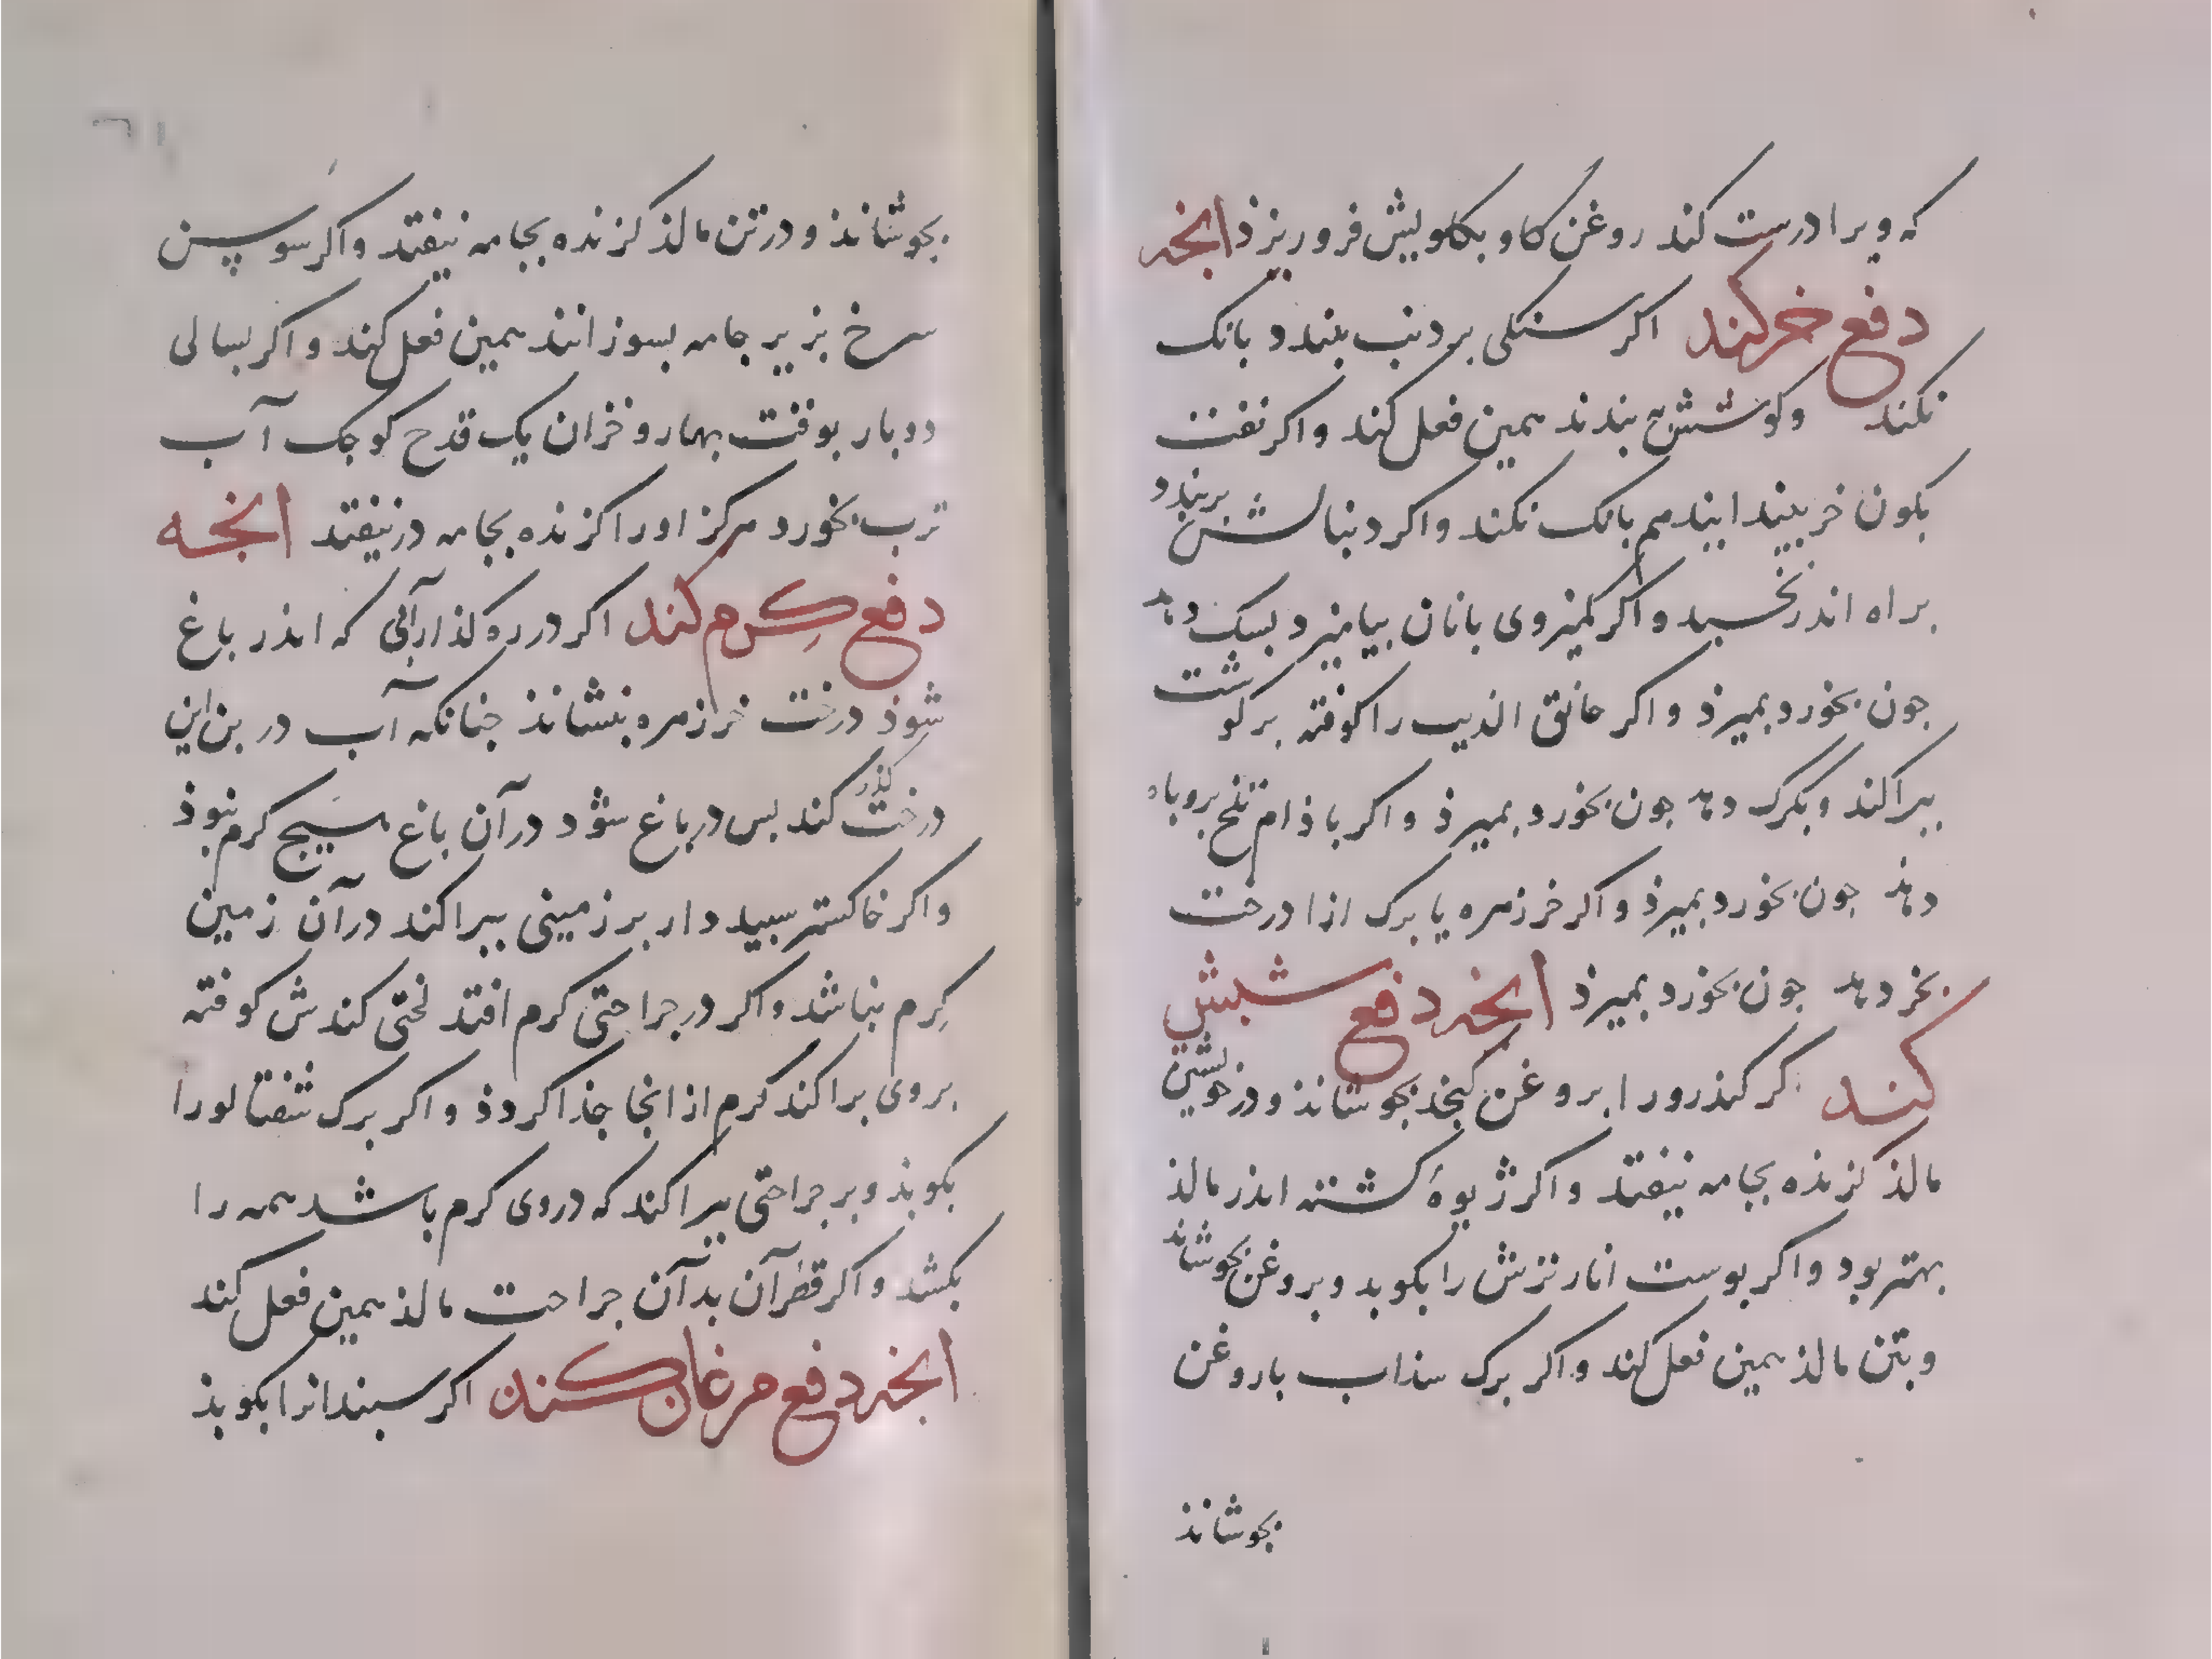 که ویرا درست کند روغن کاو بکاویش فرو ریزذ انجه
دفع خر کند اکر سنکی بر دنب بندد بانک
نکند وکوشش بندند همین فعل کند واکر نفت
بکون خر بیندایند هم بانک نکند واکر دنبالش بربندد
براه اندر نخسبد واکر کمیزوی بانان بیامیزد بسک دهد
جون بخورد بمیرذ واکر خانق الذیب را کوفته برکوشت
ببراکند وبکرک دهد جون بخورد بمیرذ واکر باذام تلخ بروباه
دهذ جون بخورد بمیرذ واکر خرزهره یا برک ازا درخت
بخر دهد جون بخورد بمیرذ انجه دفع شبش
کند اکر کندرو را بروغن کنجد بجوشاند ودر خویشتن
مالذ کزنده بجامه نیفتد واکر ژیوهٔ کشته اندر مالذ
بهتر بود واکر بوست انار ترش را بکوبد وبروغن بجوشاند
وبتن مالذ همین فعل کند واکر برک سذاب باروغن
بجوشاند
بجوشاند ودرتن مالذ کزنده بجامه نیفتد واکر سوسن
سرخ بزیر جامه بسوزانند همین فعل کند واکر بسالی
دوبار بوقت بهار وخزان یک قدح کوجک آب
ترب بخورد هرکز اورا کزنده بجامه درنیفتد انجه
دفع کرم کند اکر در ره کذار آبی که اندر باغ
شوذ درخت خرزهره بنشاند جنانکه آب در بن این
درخت کذر کند بس در باغ شود درآن باغ هیج کرم نبوذ
واکر خاکستر سبیددار بر زمینی ببراکند درآن زمین
کرم نباشد واکر در جراحتی کرم افتد لختی کندش کوفته
بروی براکند کرم ازانجا جذا کردذ واکر برک شفتالورا
بکوبذ وبر جراحتی ببراکند که دروی کرم باشد همه را
بکشد واکر قطران بدآن جراحت مالذ همین فعل کند
انجه دفع مرغان کند اکر سبندانرا بکوبذ